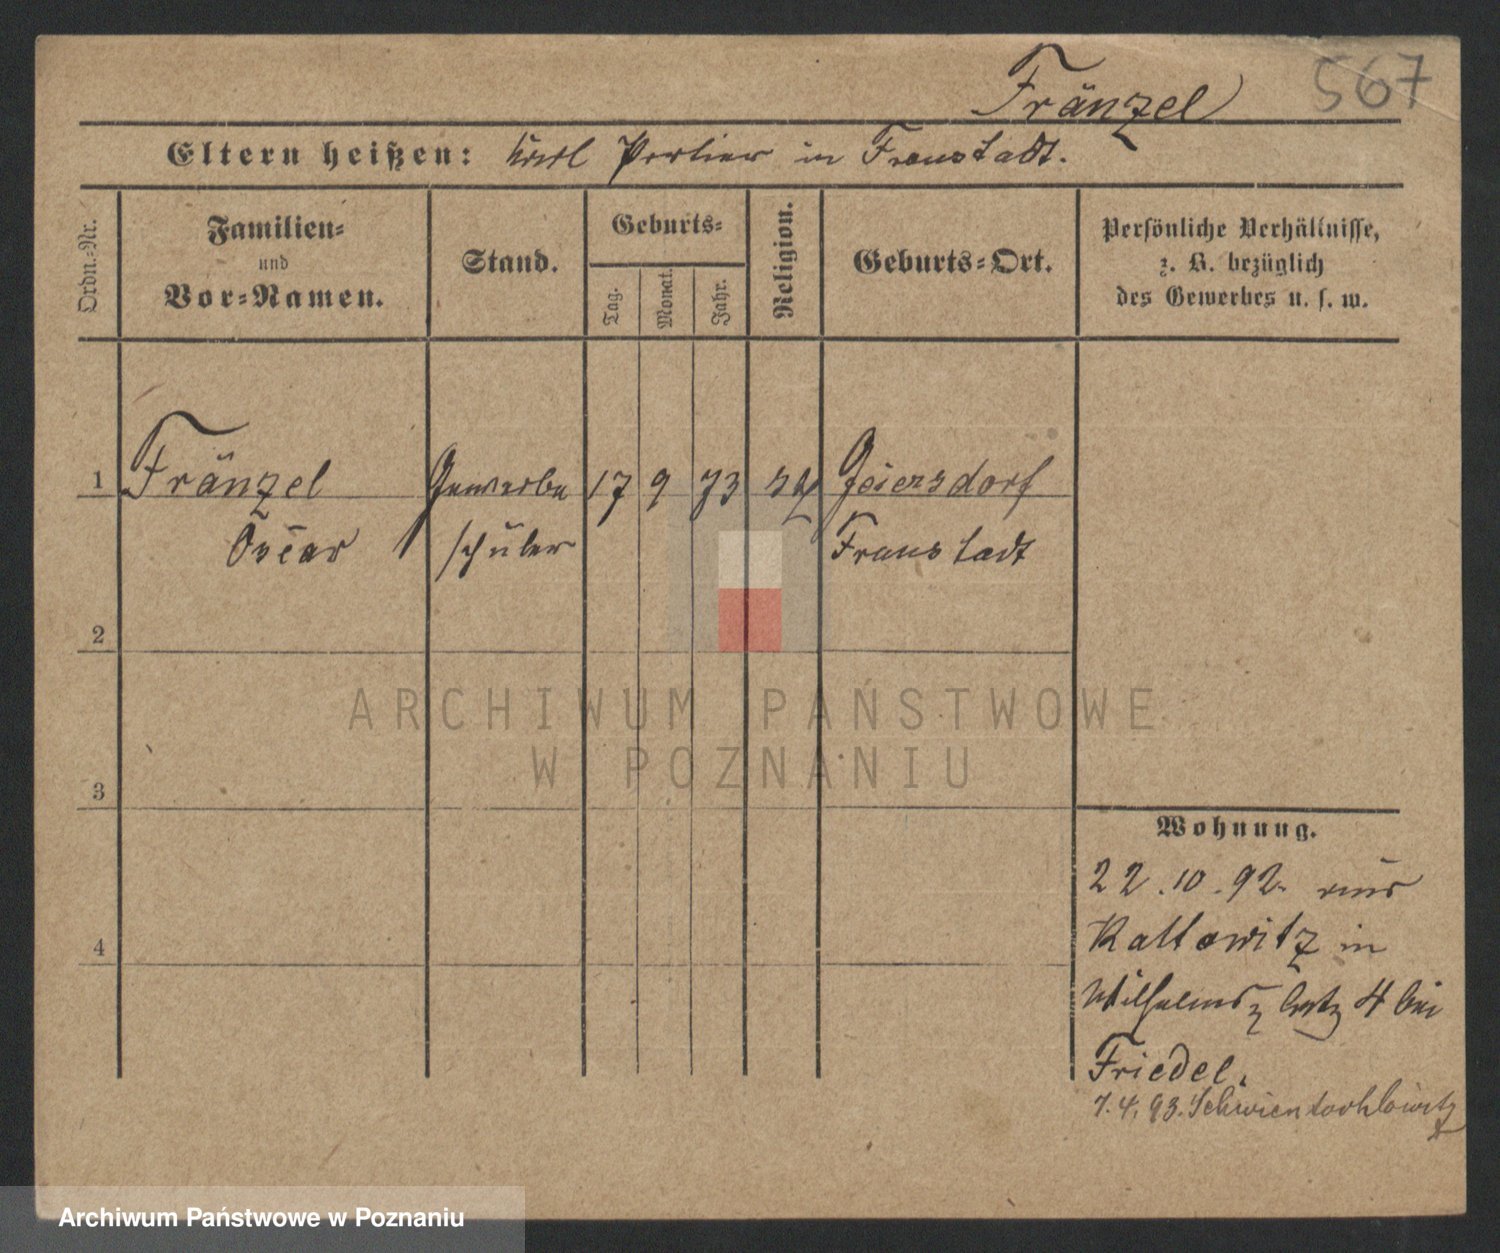 567
Fränzel
Eltern heißen: Karl Portier in Fraustadt.
Ordn.-Nr.
Familien-
und
Vor-Namen.
Stand.
Geburts-
Tag.
Monat.
Jahr.
Religion.
Geburts-Ort.
Persönliche Verhältnisse,
z. B. bezüglich
des Gewerbes u. s. w.
1 Fränzel Gewerbe 17 9 73 Geiersdorf
Oscar schüler Fraustadt
2
3
4
Wohnung.
22.10.92. aus
Kattowitz in
Wilhelmsplatz 4 bei
Friedel.
1.4.93. Schwientochlowitz
ARCHIWUM PAŃSTWOWE
W POZNANIU
Archiwum Państwowe w Poznaniu